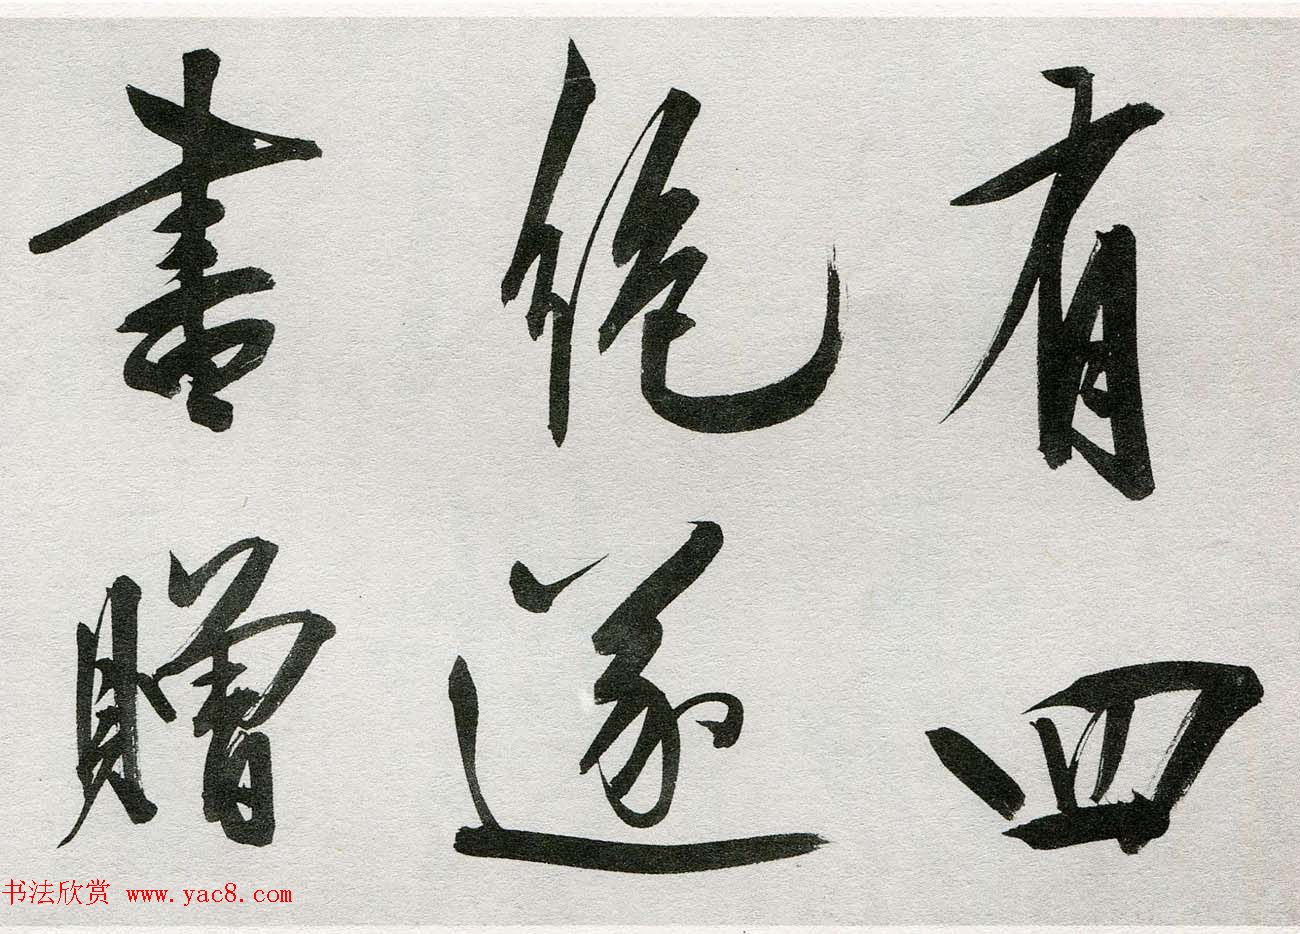 有四
絶遂
書贈
书法欣赏 www.yac8.com